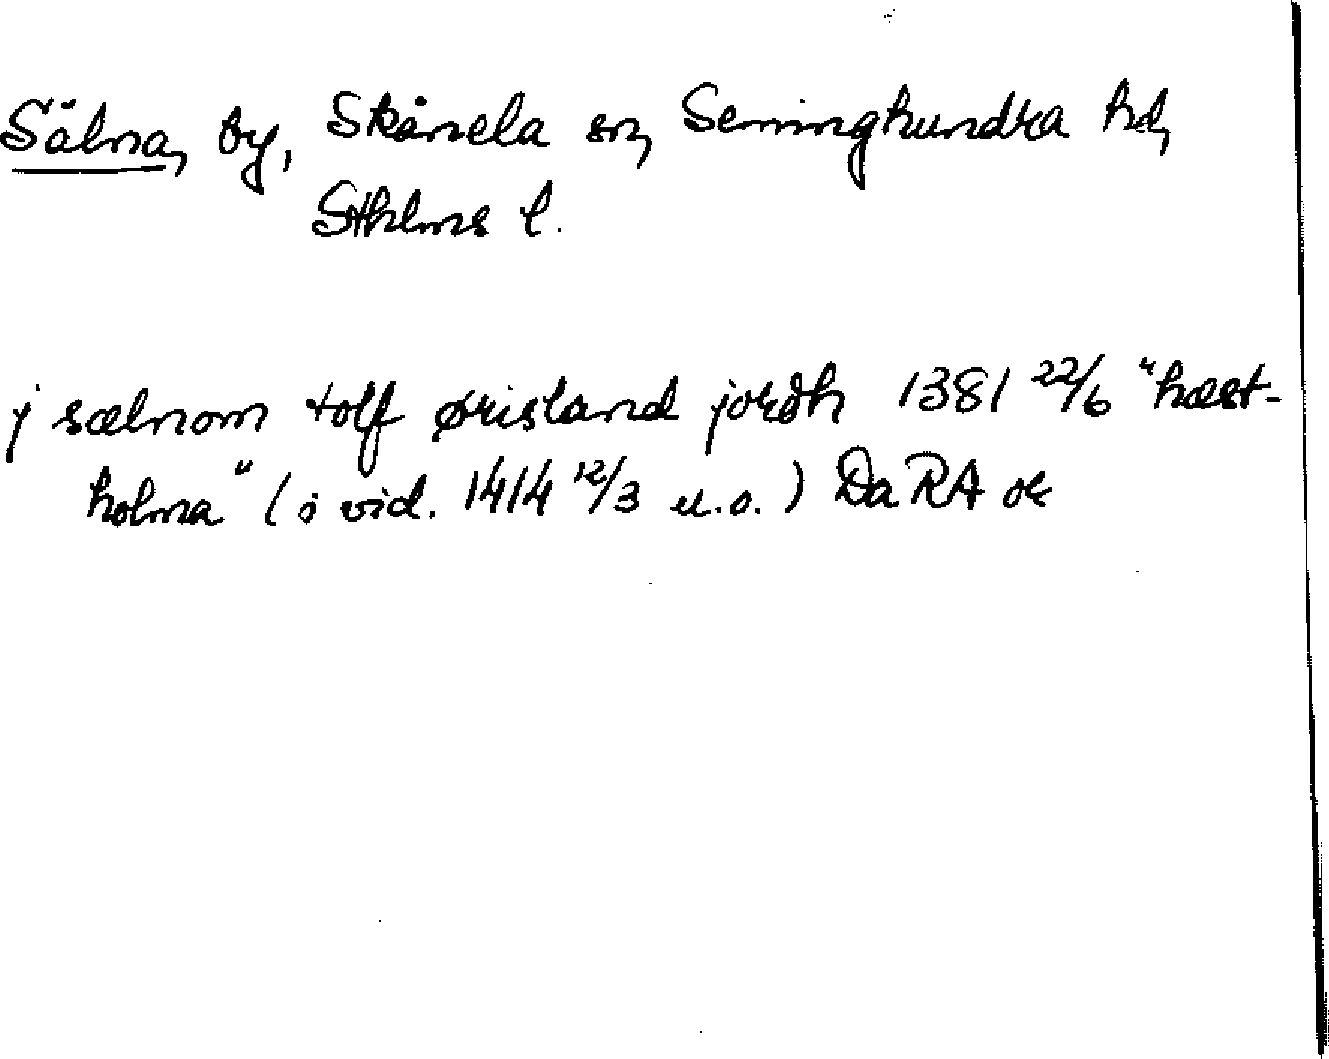 Sälna, by, Skånela sn, Seminghundra hd,
Sthlms l.
j sælnom tolf ørisland jordh 1381 22/6 "hæst-
holma" (i vid. 1414 12/3 u.o.) Da RA or